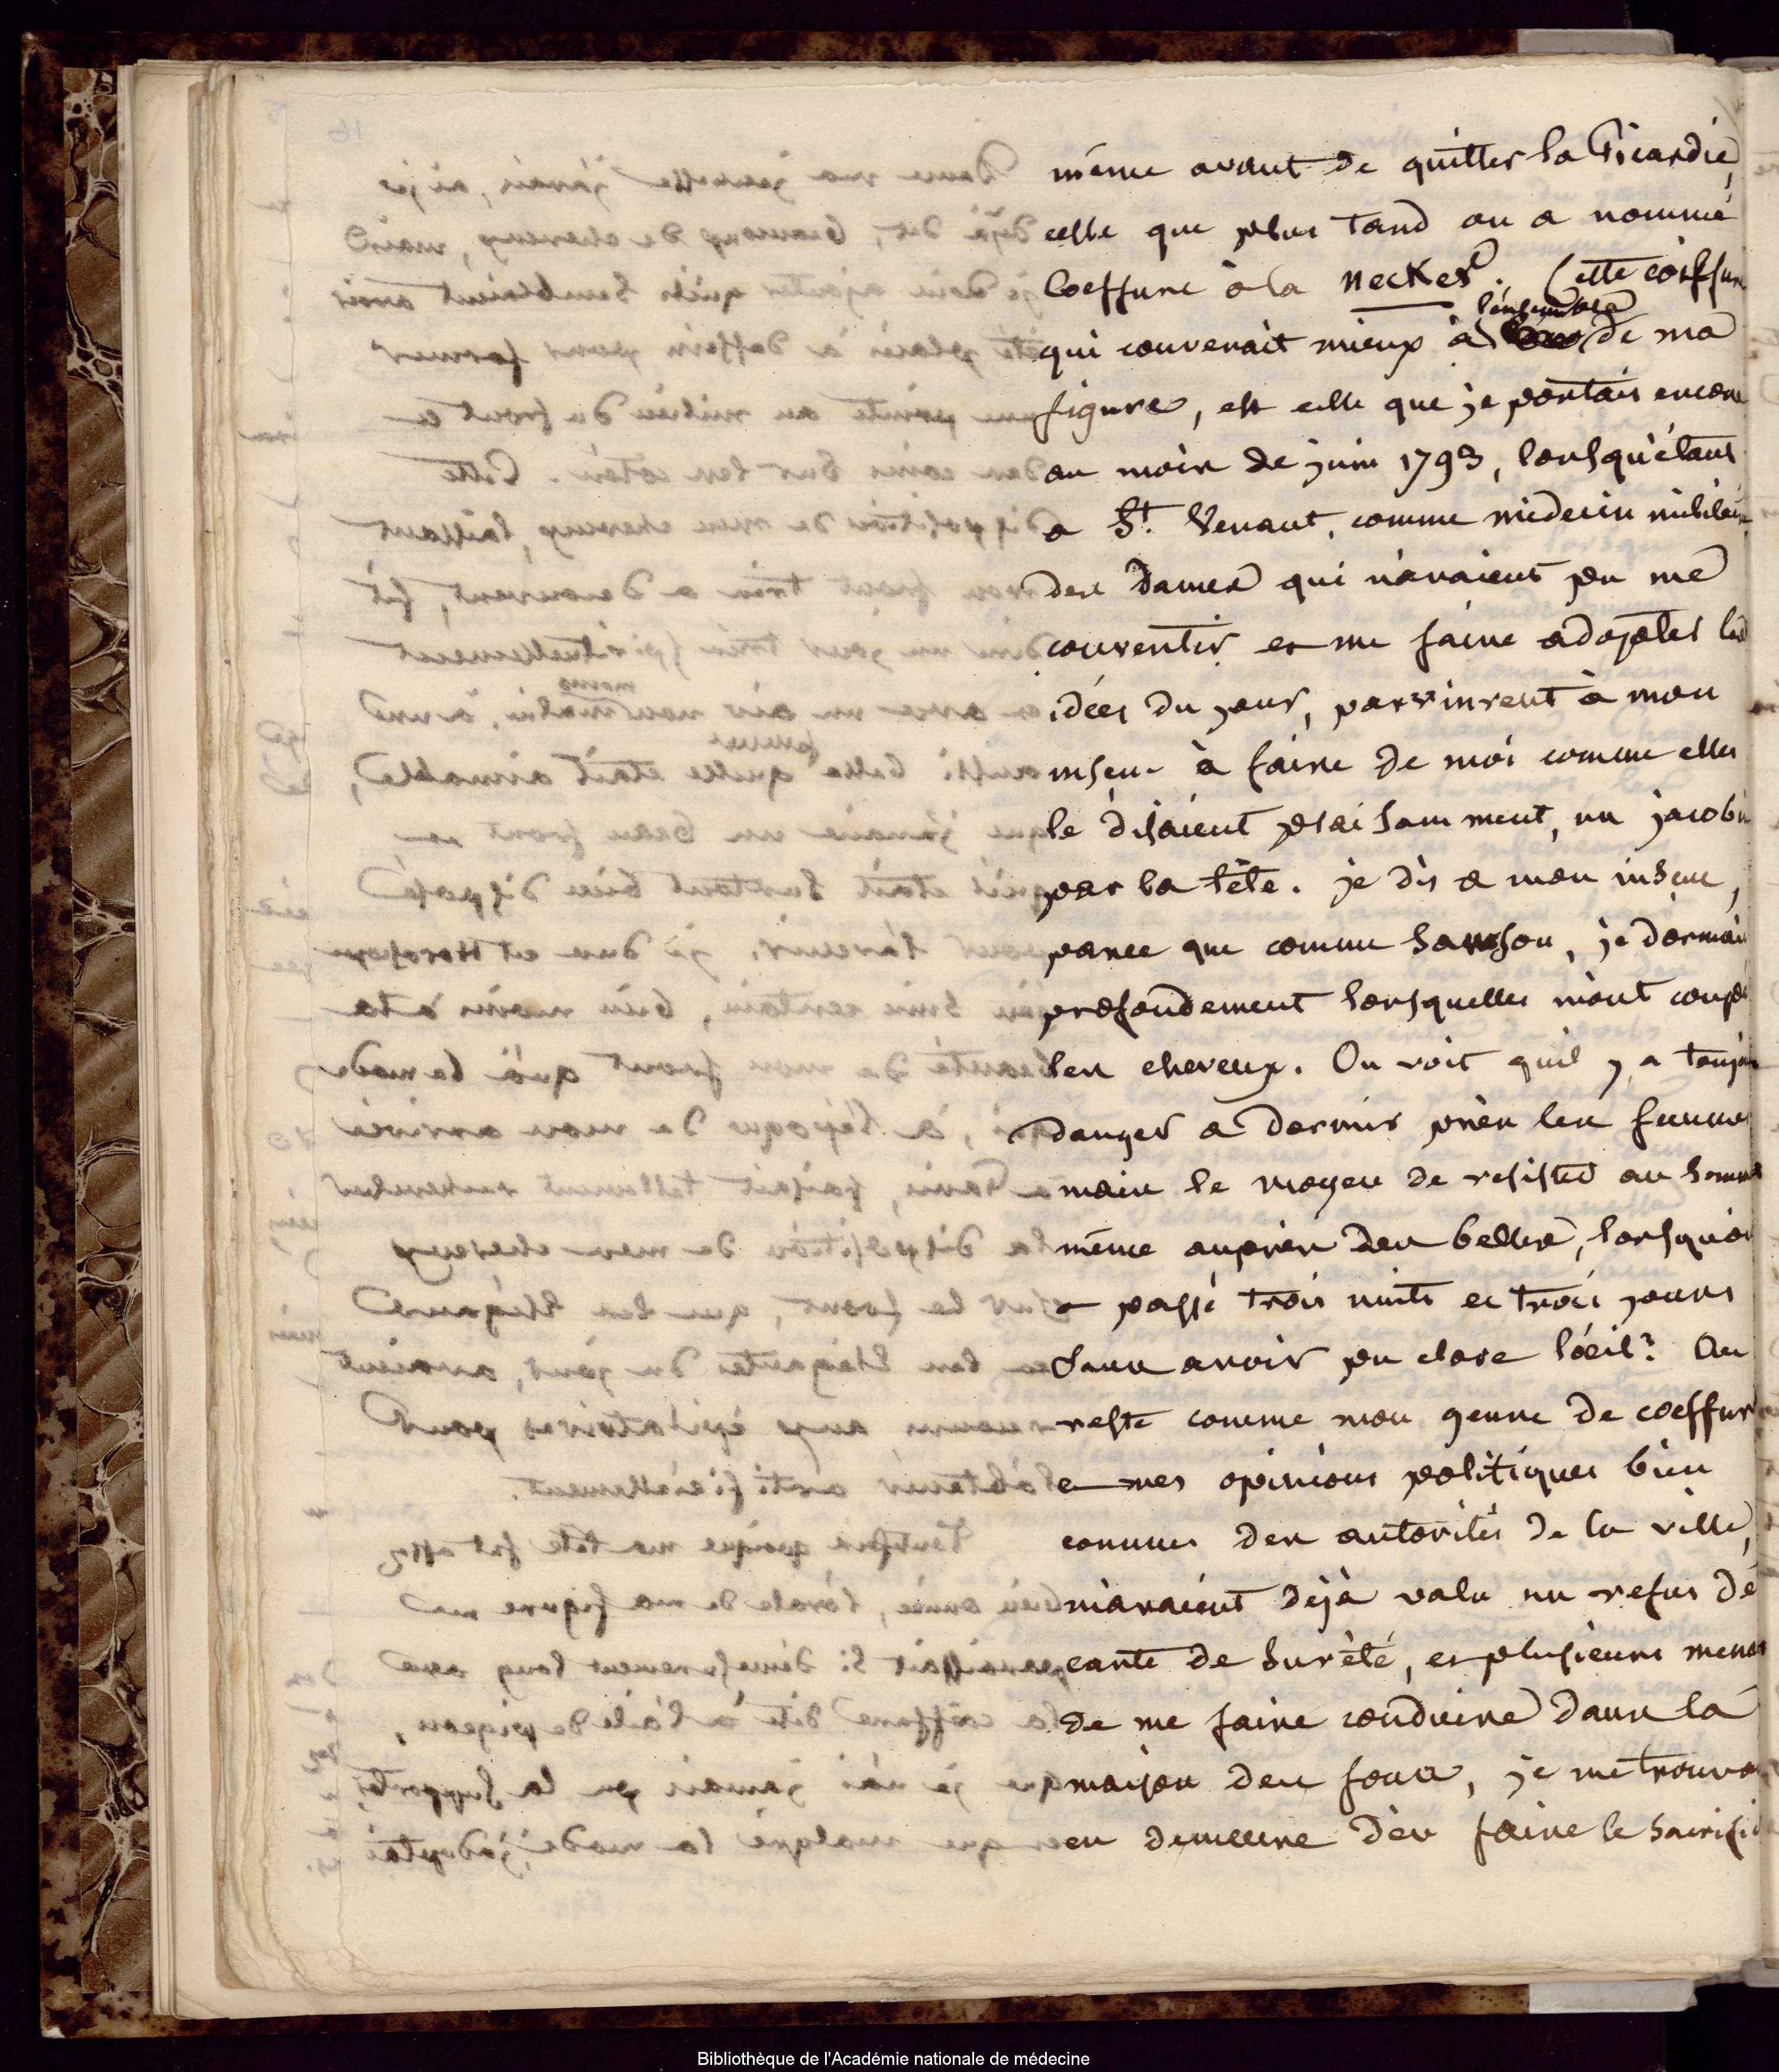 même avant de quitter la Picardie,
celle que plus tard on a nommé
Coeffure à la Necker. Cette coiffure
qui convenait mieux à l'ensemble de ma
figure, est celle que je portais encore
au mois de juin 1793, lorsqu'étant
a St. Venant, comme médecin militaire
des dames qui n'avaient pu me
convertir et me faire adopter les
idées du jour, parvinrent à mon
insçu à faire de moi comme elles
le disaient plaisamment, un jacobin
par la tête. je dis a mon insçu,
parce que comme Samson, je dormais
profondement lorsquelles m'ont coupé
les cheveux. On voit quil y a toujours
danger a dormir près les femmes
mais le moyen de resister au sommeil
même auprès des belles, lorsqu'on
a passé trois nuits et trois jours
sans avoir pu clore l'oeil? Au
reste comme mon genre de coeffure
et mes opinions politiques bien
connues des autorités de la ville,
m'avaient déjà valu un refus de
carte de sureté, et plusieurs menaces
de me faire conduire dans la
maison des fous, je me trouvai
en demeure d'en faire le sacrifice
Bibliothèque de l'Académie nationale de médecine